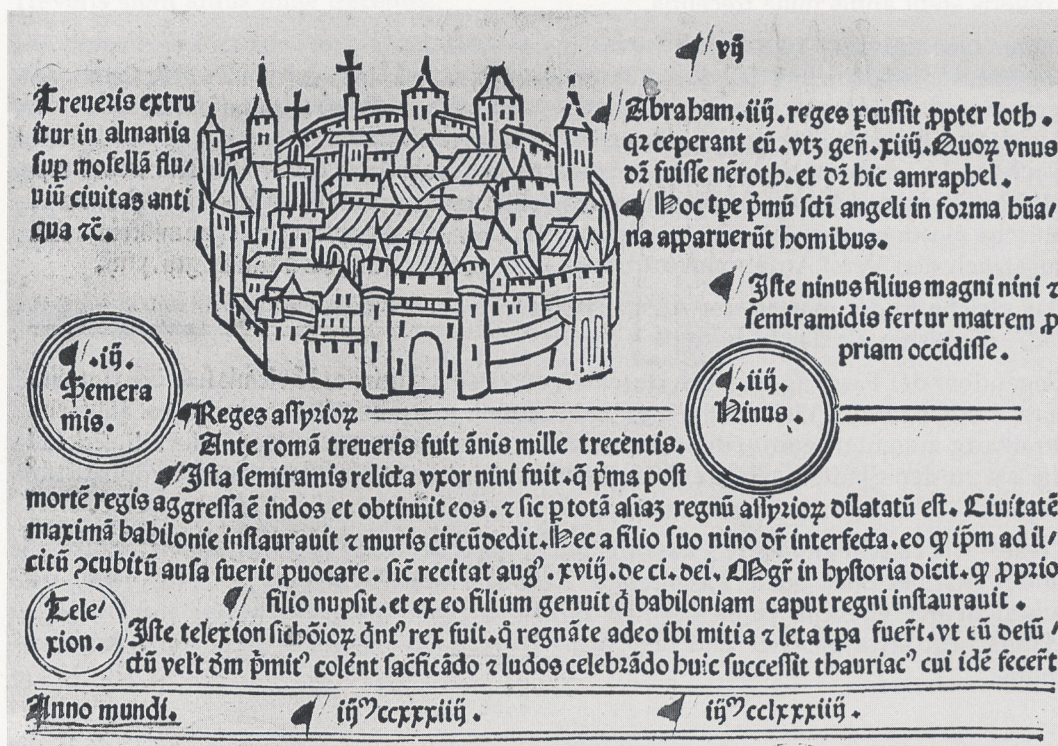 vij
Treueris extru
itur in almania
sup̱ mosellā flu/
uiū ciuitas anti
qua ⁊c̄.
Abraham .iiij. reges ꝑcussit ꝓpter loth.
qꝛ ceperant eū. vtꝫ gen̄. xiiij. Quoꝝ vnus
dr̄ fuisse nēroth. et dr̄ hic amraphel.
Hoc tp̄e p̄mū sc̄ti angeli in forma hūa/
na apparuerūt homibus.
Iste ninus filius magni nini ⁊
semiramidis fertur matrem ꝓ
priam occidisse.
.ij.
Semera
mis.
.iiij.
Ninus.
Reges assyrioꝝ
Ante romā treueris fuit ānis mille trecentis.
Ista semiramis relicta vxor nini fuit. q̄ p̄ma post
mortē regis aggressa ē indos et obtinuit eos. ⁊ sic ꝑ totā asiaꝫ regnū assyrioꝝ dilatatū est. Ciuitatē
maximā babilonie instaurauit ⁊ muris circūdedit. Hec a filio suo nino dr̄ interfecta. eo ꝙ ip̄m ad il/
citū ꝯcubitū ausa fuerit ꝓuocare. sic̄ recitat augꝰ. xviij. de ci. dei. Mgr̄ in hystoria dicit. ꝙ ꝓprio
filio nupsit. et ex eo filium genuit q̇ babiloniam caput regni instaurauit.
Tele/
xion.
Iste telexion sichōioꝝ q̇ntꝰ rex fuit. q̊ regnāte adeo ibi mitia ⁊ leta tp̄a fuer̄t. vt eū defū/
ctū vel̄t dōm p̄mitꝰ colent sac̄ficādo ⁊ ludos celebrādo huic successit thauriacꝰ cui idē fecer̄t
Anno mundi. iijᵐccxxxiiij. iijᵐcclxxxiiij.